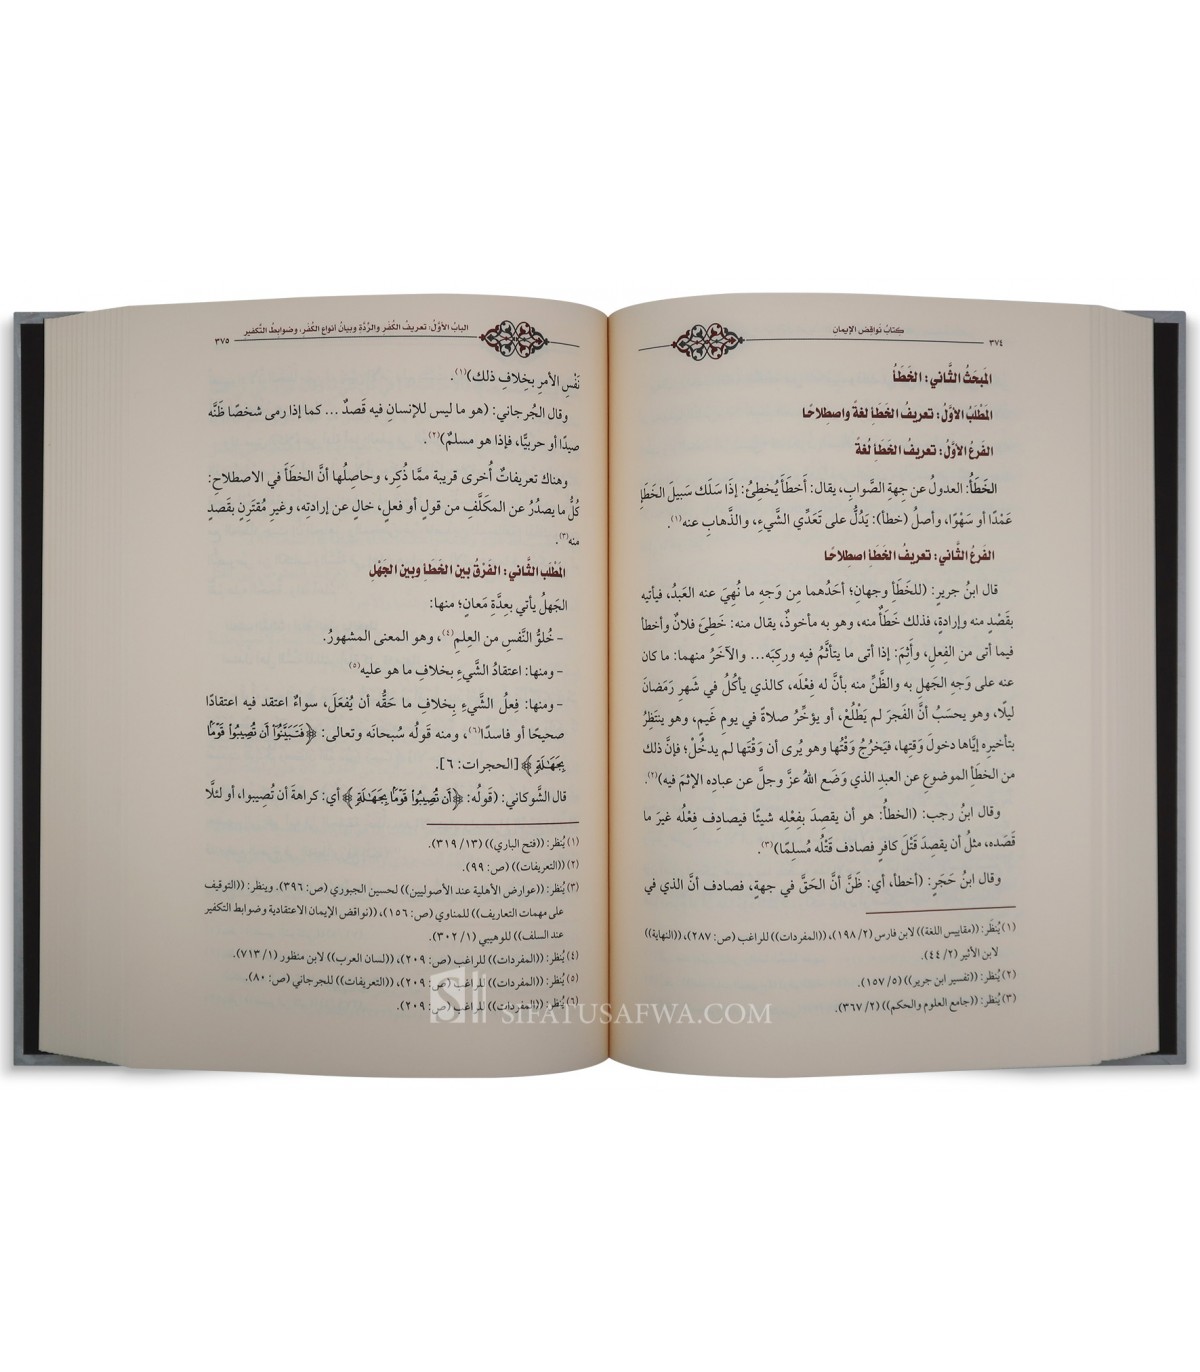 ٣٧٤
كتابُ نَواقِضِ الإيمان
المَبحَثُ الثَّاني: الخَطَأُ
المَطْلَبُ الأوَّلُ: تعريفُ الخَطَأِ لغةً واصطِلاحًا
الفَرعُ الأوَّلُ: تعريفُ الخَطَأِ لُغةً
الخَطَأُ: العدولُ عن جِهةِ الصَّوابِ، يقال: أخطَأَ يُخطِئُ: إذَا سَلَك سَبيلَ الخَطَأِ
عَمْدًا أو سَهْوًا، وأصلُ (خطأ): يَدُلُّ على تَعَدِّي الشَّيءِ، والذَّهابِ عنه(١).
الفَرعُ الثَّاني: تعريفُ الخَطَأِ اصطِلاحًا
قال ابنُ جريرٍ: (للخَطَأِ وجهانِ؛ أحَدُهما مِن وَجهِ ما نُهِيَ عنه العَبدُ، فيأتيه
بقَصْدٍ منه وإرادةٍ، فذلك خَطَأٌ منه، وهو به مأخوذٌ، يقال منه: خَطِئَ فلانٌ وأخطأ
فيما أتى من الفِعلِ، وأَثِمَ: إذا أتى ما يتأثَّمُ فيه وركِبَه... والآخَرُ منهما: ما كان
عنه على وَجهِ الجَهلِ به والظَّنِّ منه بأنَّ له فِعْلَه، كالذي يأكُلُ في شَهرِ رَمَضانَ
ليلًا، وهو يحسَبُ أنَّ الفَجرَ لم يَطْلُعْ، أو يؤخِّرُ صلاةً في يومِ غَيمٍ، وهو ينتَظِرُ
بتأخيرِه إيَّاها دخولَ وَقتِها، فيَخرُجُ وَقْتُها وهو يُرى أن وَقْتَها لم يدخُلْ؛ فإنَّ ذلك
من الخَطأِ الموضوعِ عن العبدِ الذي وَضَع اللهُ عزَّ وجلَّ عن عبادِه الإثمَ فيه)(٢).
وقال ابنُ رجب: (الخطأُ: هو أن يقصِدَ بفِعْلِه شيئًا فيصادِف فِعْلُه غيرَ ما
قَصَدَه، مثلُ أن يقصِدَ قَتْلَ كافرٍ فصادف قَتْلُه مُسلِمًا)(٣).
وقال ابنُ حَجَرٍ: (أخطأ، أي: ظَنَّ أنَّ الحَقَّ في جهةٍ، فصادف أنَّ الذي في
(١) يُنظَر: ((مقاييس اللغة)) لابن فارس (٢/ ١٩٨)، ((المفردات)) للراغب (ص: ٢٨٧)، ((النهاية))
لابن الأثير (٢/ ٤٤).
(٢) يُنظَر: ((تفسير ابن جرير)) (٥/ ١٥٧).
(٣) يُنظَر: ((جامع العلوم والحكم)) (٢/ ٣٦٧).
البابُ الأوَّلُ: تعريفُ الكُفرِ والرِّدَّةِ وبيانُ أنواعِ الكُفرِ، وضوابِطُ التَّكفيرِ
٣٧٥
نَفْسِ الأمرِ بخِلافِ ذلك)(١).
وقال الجُرجاني: (هو ما ليس للإنسانِ فيه قَصدٌ ... كما إذا رمى شخصًا ظنَّه
صيدًا أو حربيًّا، فإذا هو مسلمٌ)(٢).
وهناك تعريفاتٌ أُخرى قريبة ممَّا ذُكِر، وحاصِلُها أنَّ الخطَأَ في الاصطلاحِ:
كُلُّ ما يصدُرُ عن المكَلَّفِ من قولٍ أو فعلٍ، خالٍ عن إرادتِه، وغيرِ مُقتَرِنٍ بقَصدٍ
منه(٣).
المَطْلَب الثَّاني: الفَرْقُ بين الخَطَأِ وبين الجَهْلِ
الجَهلُ يأتي بعِدَّةِ مَعانٍ؛ منها:
- خُلوُّ النَّفسِ من العِلمِ(٤)، وهو المعنى المشهورُ.
- ومنها: اعتقادُ الشَّيءِ بخلافِ ما هو عليه(٥)
- ومنها: فِعلُ الشَّيءِ بِخلافِ ما حَقُّه أن يُفعَلَ، سواءٌ اعتقد فيه اعتقادًا
صحيحًا أو فاسدًا(٦)، ومنه قَولُه سُبحانَه وتعالى: ﴿فَتَبَيَّنُوٓا۟ أَن تُصِيبُوا۟ قَوْمًۢا
بِجَهَـٰلَةٍ﴾ [الحجرات: ٦].
قال الشَّوكاني: (قَولُه: ﴿أَن تُصِيبُوا۟ قَوْمًۢا بِجَهَـٰلَةٍ﴾ أي: كراهةَ أن تُصيبوا، أو لئلَّا
(١) يُنظر: ((فتح الباري)) (١٣/ ٣١٩).
(٢) ((التعريفات)) (ص: ٩٩).
(٣) يُنظر: ((عوارض الأهلية عند الأصوليين)) لحسين الجبوري (ص: ٣٩٦). وينظر: ((التوقيف
على مهمات التعاريف)) للمناوي (ص: ١٥٦)، ((نواقض الإيمان الاعتقادية وضوابط التكفير
عند السلف)) للوهيبي (١/ ٣٠٢).
(٤) يُنظر: ((المفردات)) للراغب (ص: ٢٠٩)، ((لسان العرب)) لابن منظور (١/ ٧١٣).
(٥) يُنظر: ((المفردات)) للراغب (ص: ٢٠٩)، ((التعريفات)) للجرجاني (ص: ٨٠).
(٦) يُنظر: ((المفردات)) للراغب (ص: ٢٠٩).
SIFATUSAFWA.COM